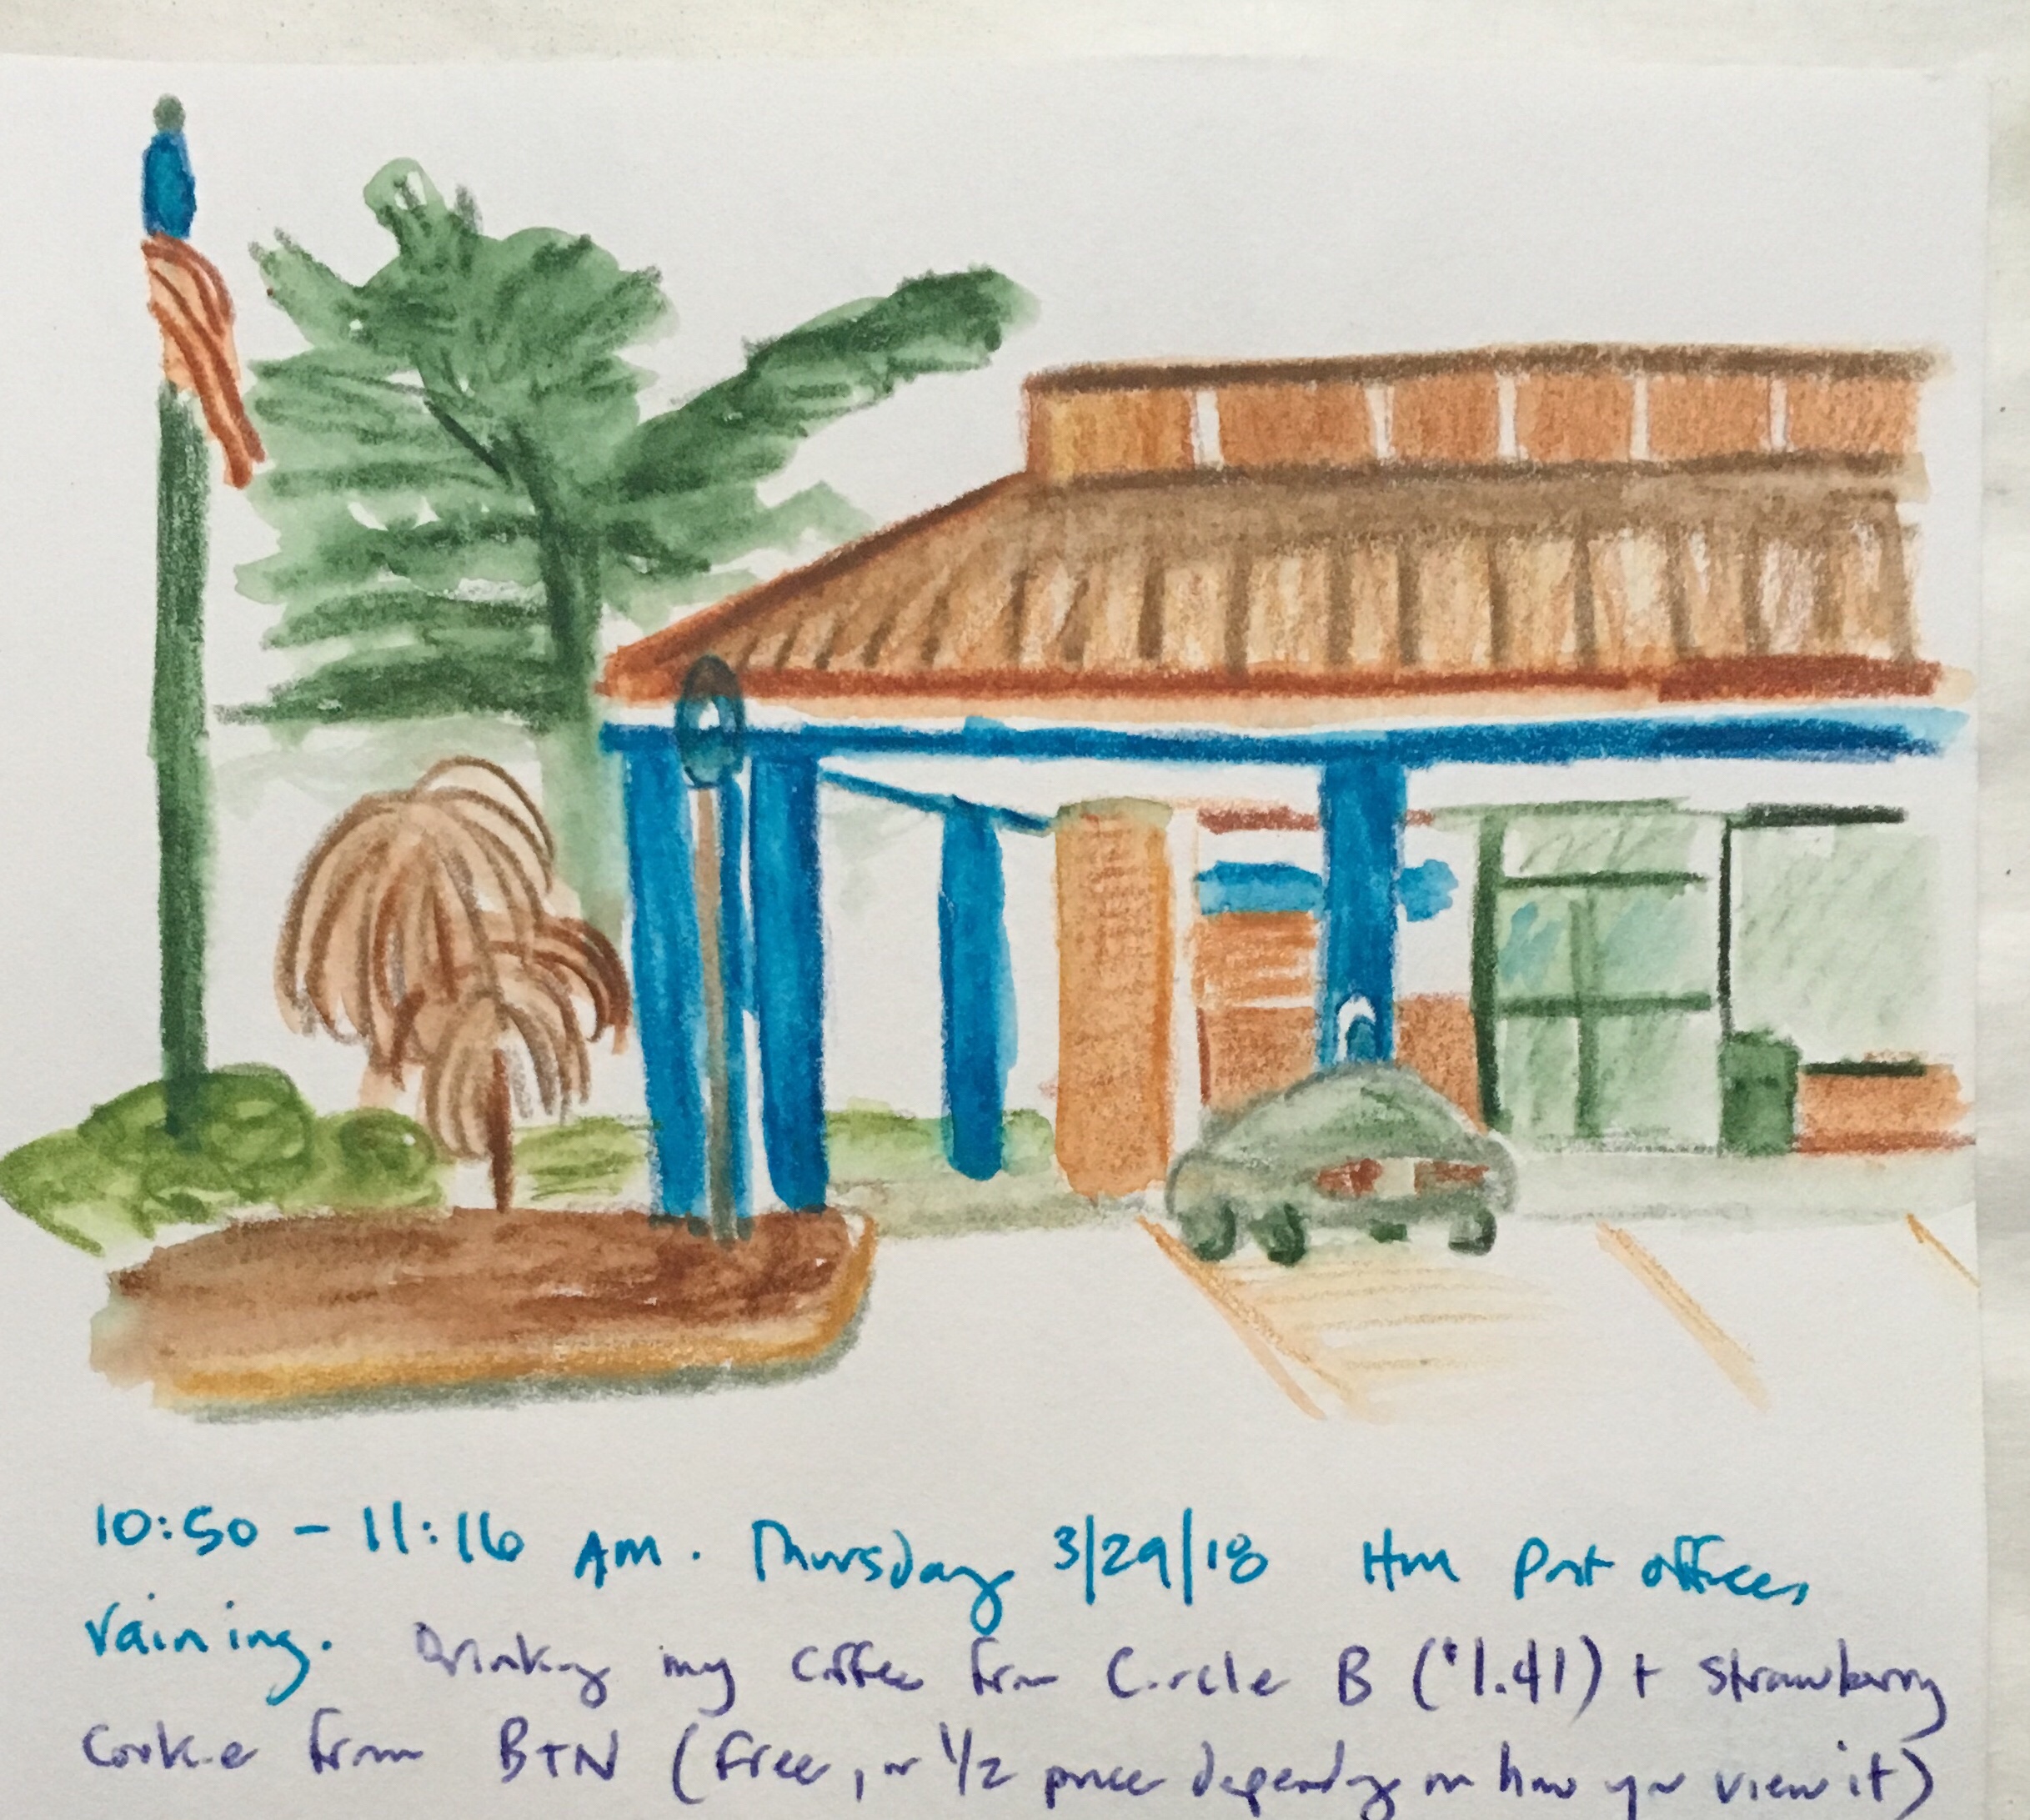 10:50 - 11:16 AM. Thursday 3/29/18 HM Post office,
raining. Drinking my coffee from Circle B ($1.41) + strawberry
cookie from BTN (free, or 1/2 price depending on how you view it)